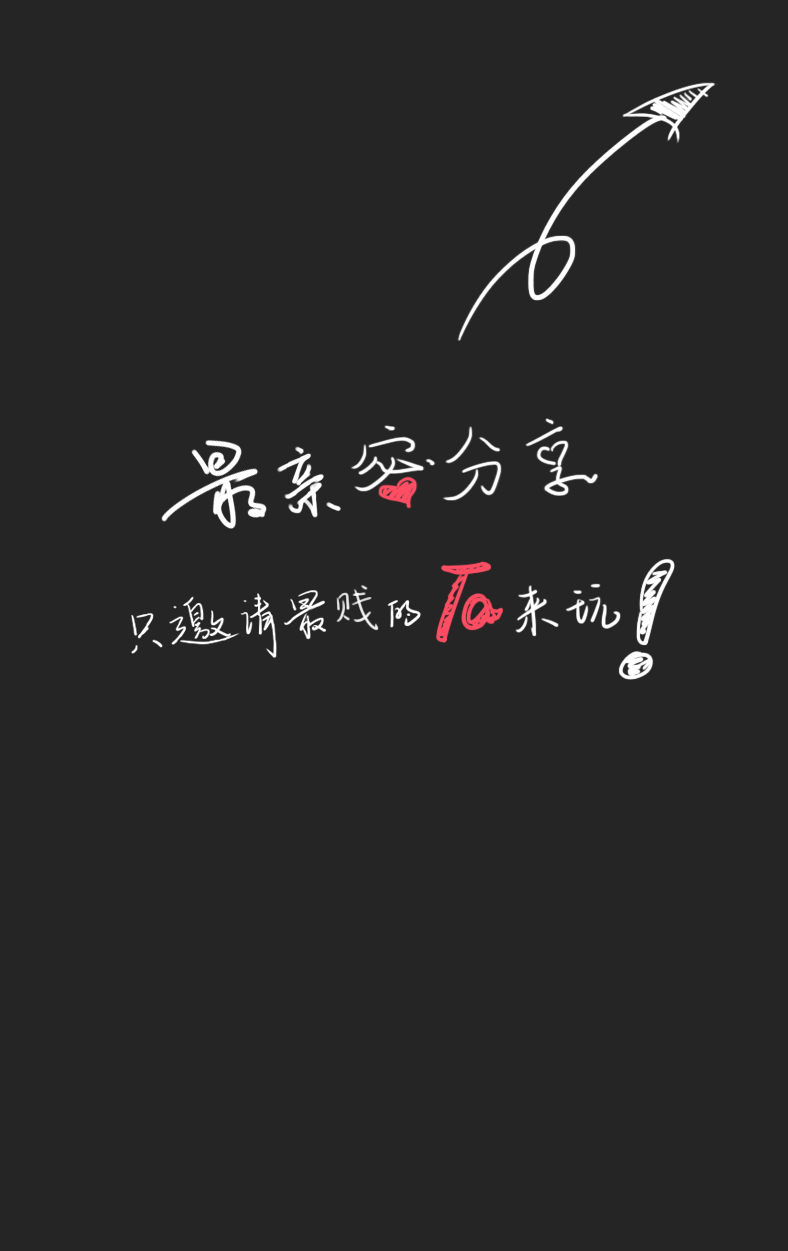 最亲密分享
只邀请最贱的Ta来玩!